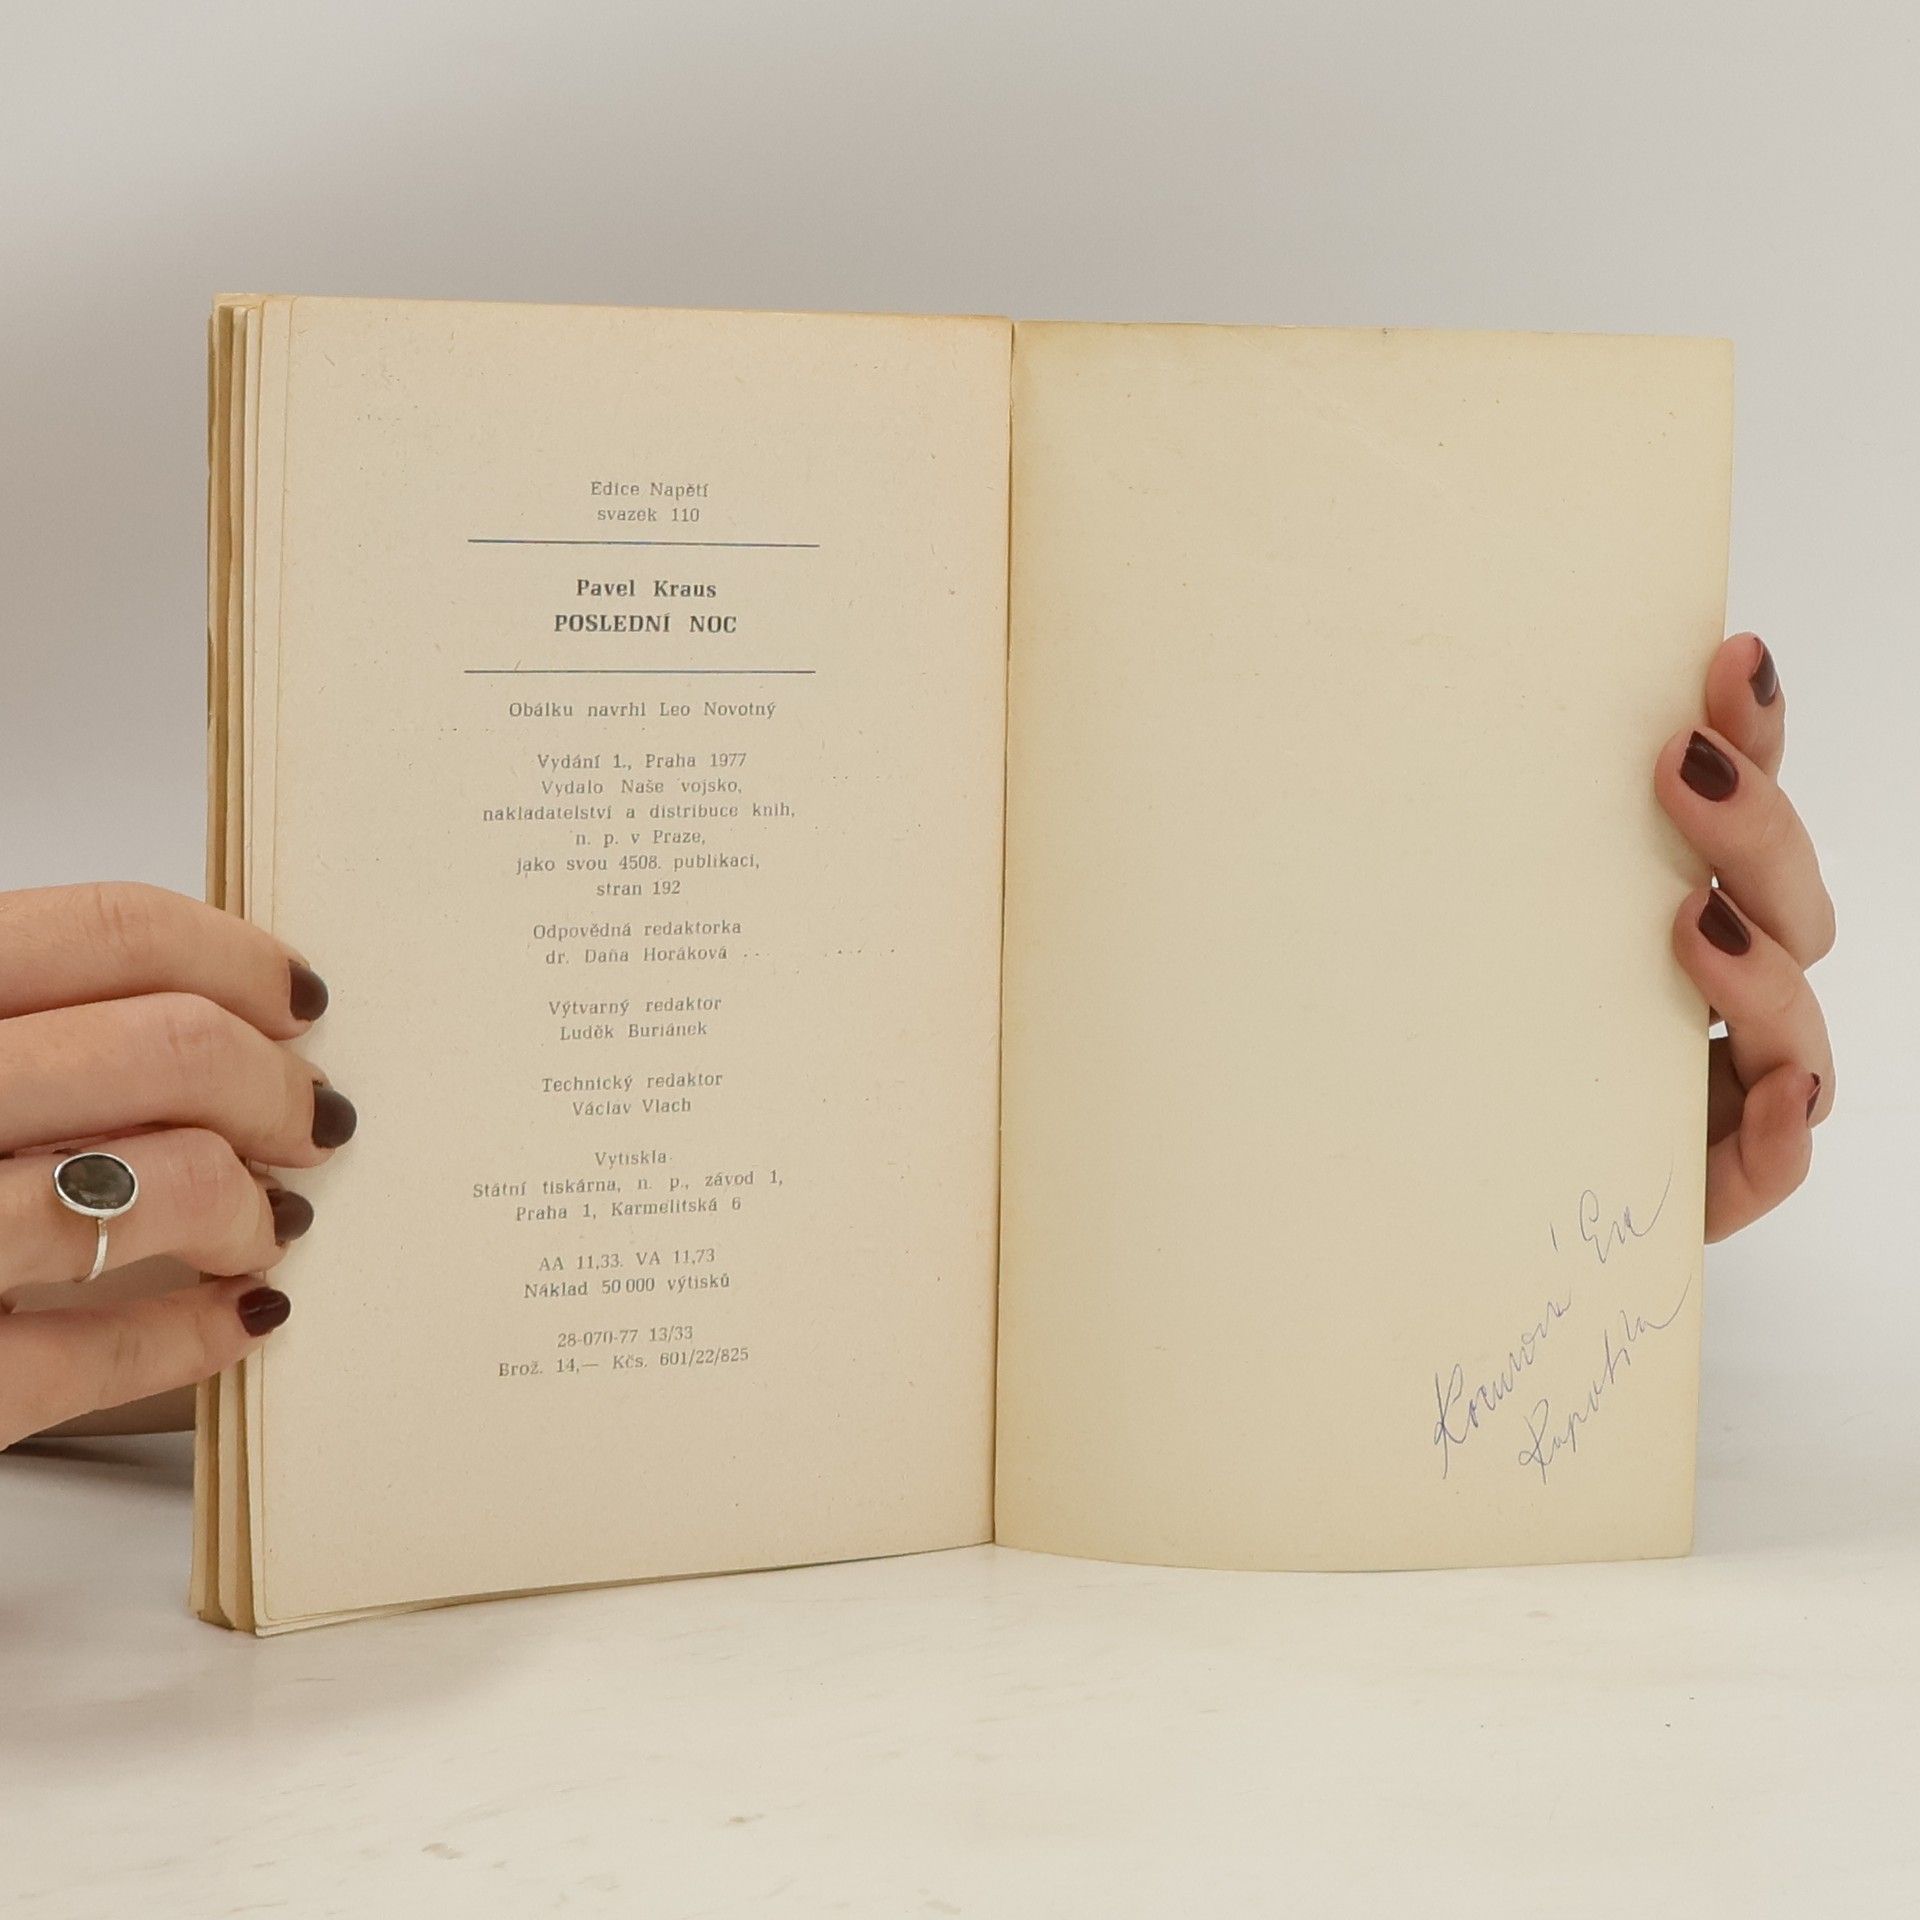 Edice Napětí
svazek 110
Pavel Kraus
POSLEDNÍ NOC
Obálku navrhl Leo Novotný
Vydání 1., Praha 1977
Vydalo Naše vojsko,
nakladatelství a distribuce knih,
n. p. v Praze,
jako svou 4508. publikaci,
stran 192
Odpovědná redaktorka
dr. Daňa Horáková
Výtvarný redaktor
Luděk Buriánek
Technický redaktor
Václav Vlach
Vytiskla
Státní tiskárna, n. p., závod 1,
Praha 1, Karmelitská 6
AA 11,33. VA 11,73
Náklad 50 000 výtisků
28-070-77 13/33
Brož. 14,— Kčs. 601/22/825
Eva